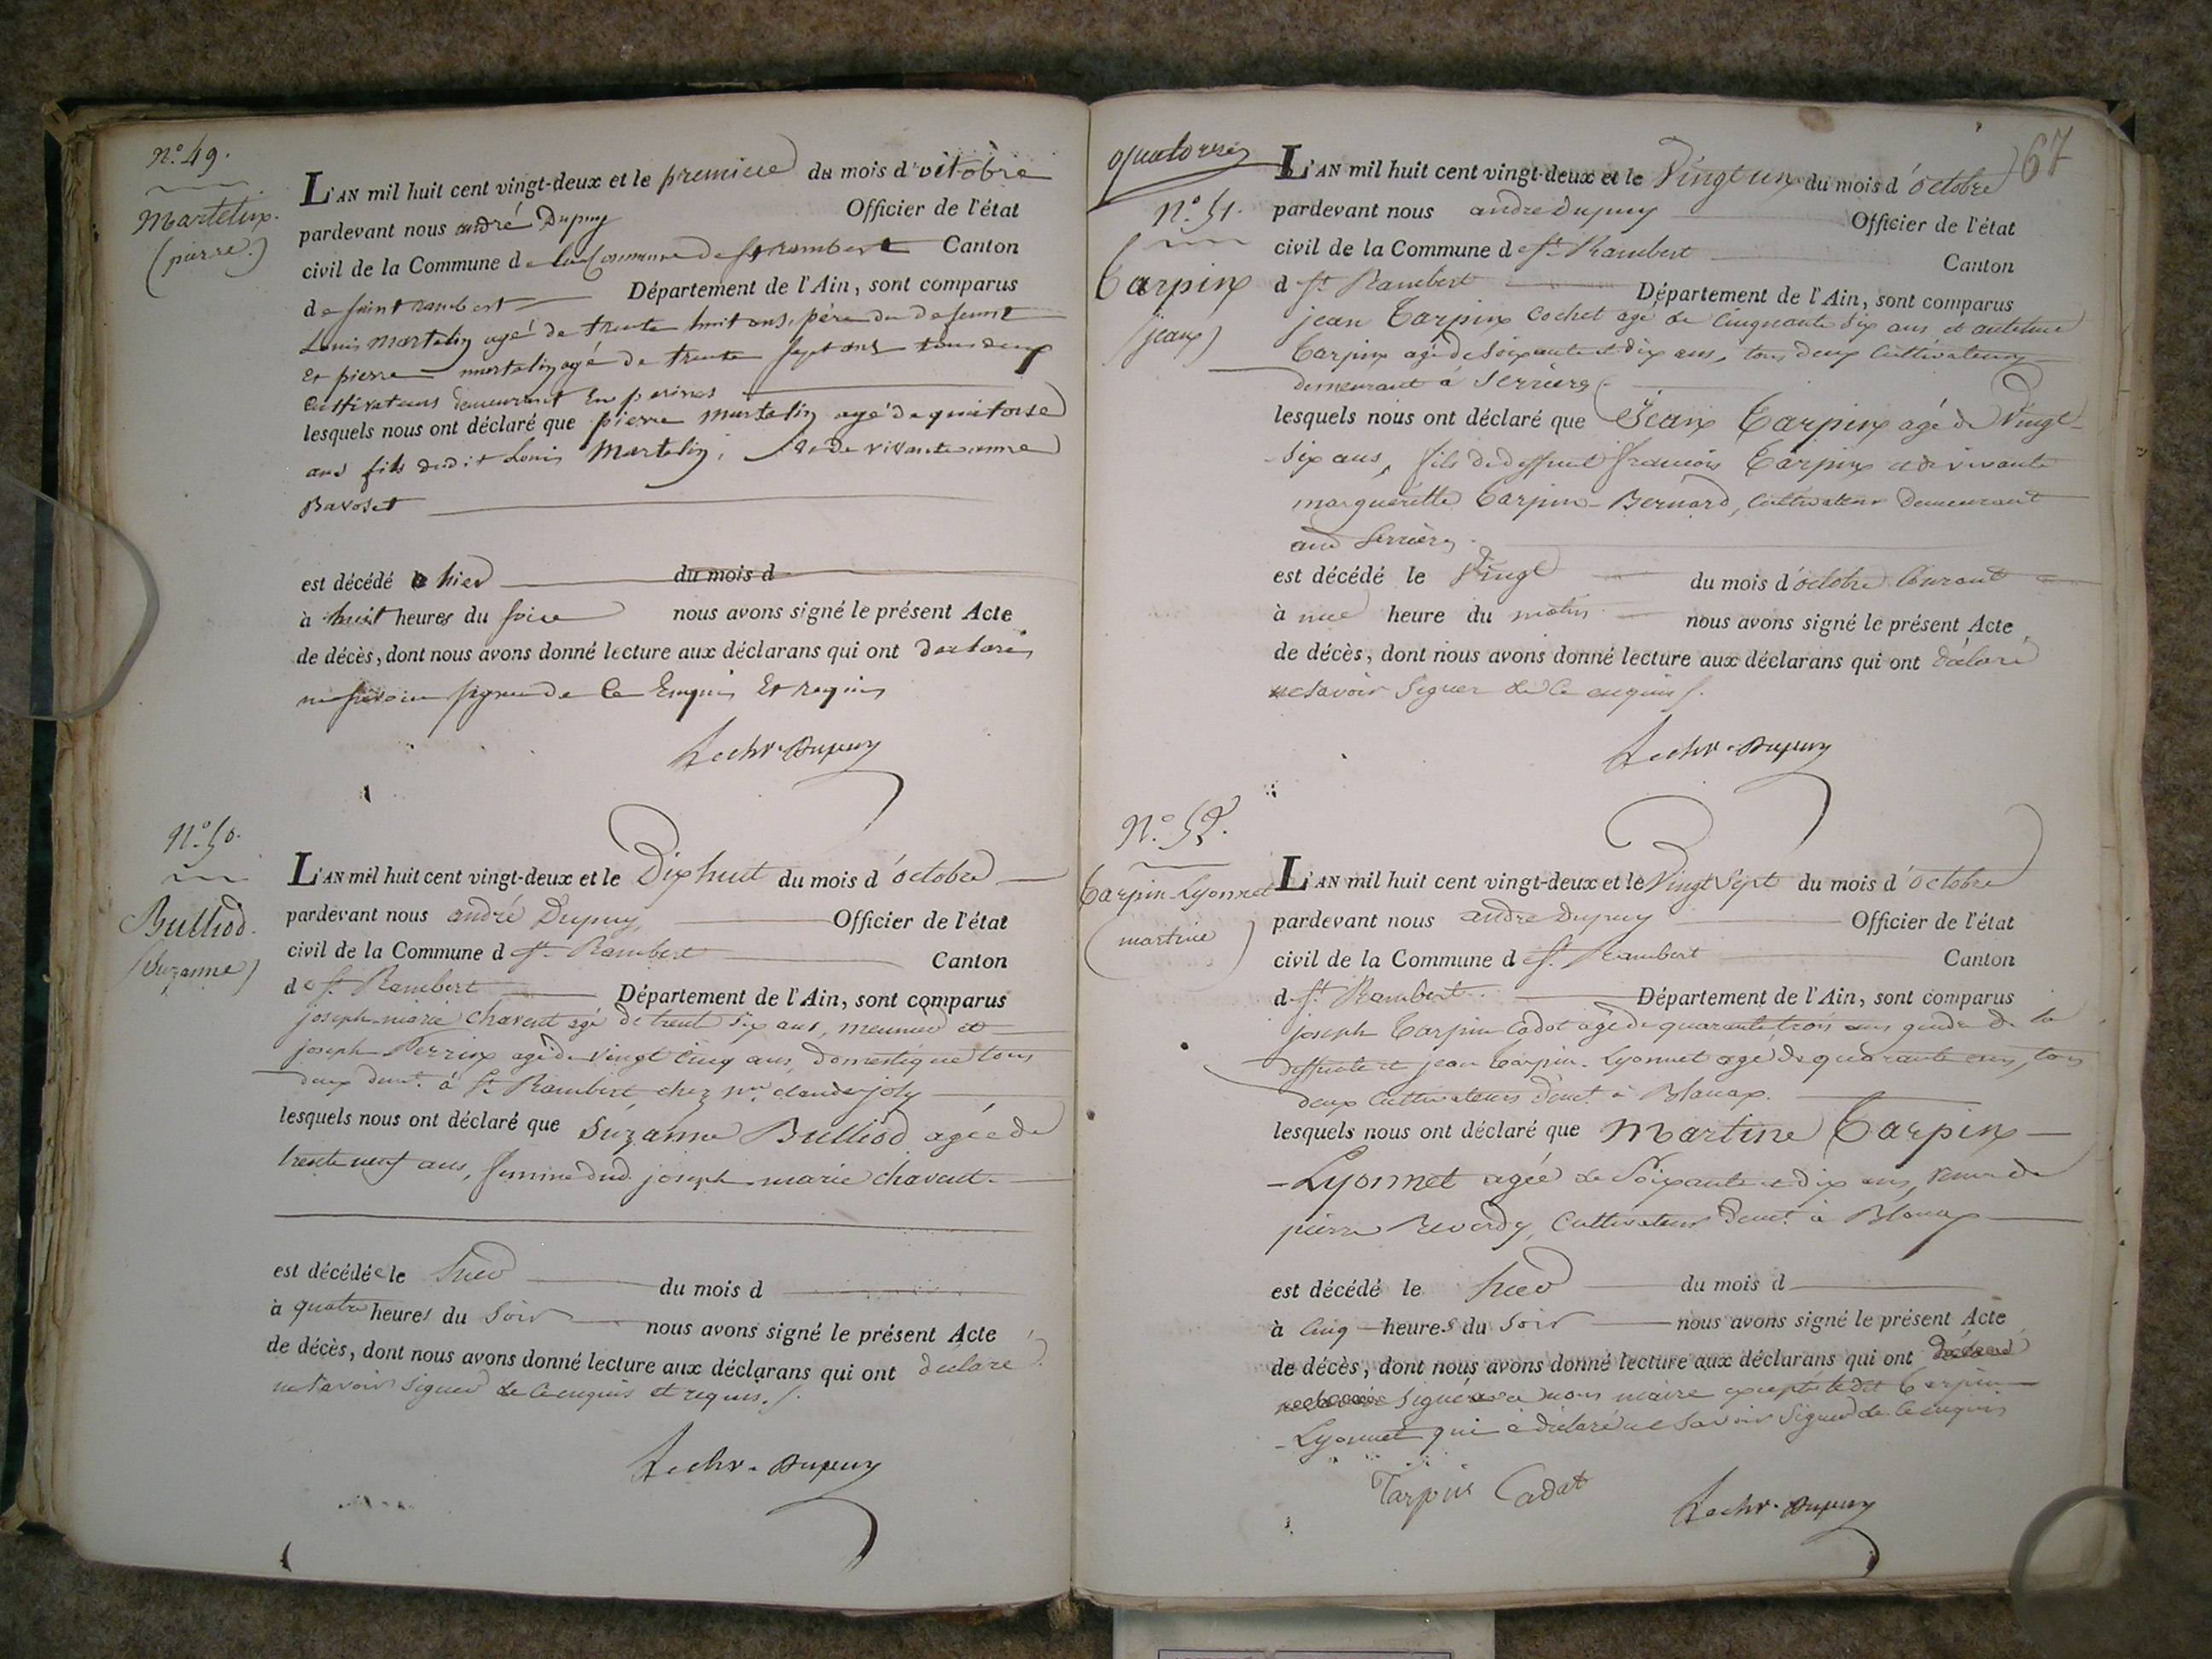 N.º 49.
Martelin.
(pierre.)
L'AN mil huit cent vingt-deux et le premiere du mois d'octobre
pardevant nous andré Dupuy Officier de l'état
civil de la Commune de la Commune de St rambert Canton
de saint rambert Département de l'Ain, sont comparus
Louis martelin agé de trente huit ans, père du defeunt
Et pierre martelin agé de trente sept ans tous deux
Cultivateurs demeurant
lesquels nous ont déclaré que pierre martelin agé de quatorse
ans fils dudit Louis Martelin, et de vivante anne
Bavoset
est décédé hier du mois d
à huit heures du soire nous avons signé le présent Acte
de décès, dont nous avons donné lecture aux déclarans qui ont declaré
ne savoire signer de Ce Enquis Et requis
Dupuy
N.º 50.
Bulliod.
(Suzanne)
L'AN mil huit cent vingt-deux et le Dix huit du mois d'octobre
pardevant nous andré Dupuy, Officier de l'état
civil de la Commune d St Rambert Canton
de St Rambert Département de l'Ain, sont comparus
joseph-marie Chavent agé de trente six ans, meunier et
joseph Perrin agé de vingt cinq ans, domestique tous
deux demt. à St Rambert chez mr. claude joly
lesquels nous ont déclaré que Suzanne Bulliod agée de
trente neuf ans, femme dud. joseph marie chavent.
est décédée le hier du mois d
à quatre heures du Soir nous avons signé le présent Acte
de décès, dont nous avons donné lecture aux déclarans qui ont déclaré
ne savoir signer de ce enquis et requis.
Dupuy
quatorze
67
N.º 51.
Carpin
(jean)
L'AN mil huit cent vingt-deux et le Vingt un du mois d'octobre
pardevant nous andre Dupuy Officier de l'état
civil de la Commune de St Rambert Canton
d St Rambert Département de l'Ain, sont comparus
jean Carpin Cochet agé de Cinquante six ans et
Carpin agé de soixante et dix ans, tous deux Cultivateurs
demeurant à Serrières
lesquels nous ont déclaré que Jean Carpin agé de Vingt
Six ans, fils de deffunt francois Carpin et de vivante
margueritte Carpin-Bernard, Cultivateur demeurant
aud Serrières.
est décédé le Vingt du mois d'octobre Courant
à une heure du matin nous avons signé le présent Acte
de décès, dont nous avons donné lecture aux déclarans qui ont déclaré
ne savoir Signer de Ce enquis
Dupuy
N.º 52.
Carpin-Lyonnet
(martine)
L'AN mil huit cent vingt-deux et le Vingt Sept du mois d'octobre
pardevant nous andre Dupuy Officier de l'état
civil de la Commune de St. Rambert Canton
d St Rambert. Département de l'Ain, sont comparus
joseph Carpin Cadot agé de quarante trois ans gendre de la
deffunte et jean Carpin-Lyonnet agé de quarante ans, tous
deux Cultivateurs demt. à Blanax.
lesquels nous ont déclaré que Martine Carpin
-Lyonnet agée de Soixante et dix ans, veuve de
pierre Reverdy, Cultivateur demt. à Blanax
est décédé le hier du mois d
à Cinq heures du Soir nous avons signé le présent Acte
de décès, dont nous avons donné lecture aux déclarans qui ont déclaré
ne savoir Signé avec nous maire excepté ledit Carpin
-Lyonnet qui a déclaré ne savoir Signer de Ce enquis
Carpin Cadot
Dupuy